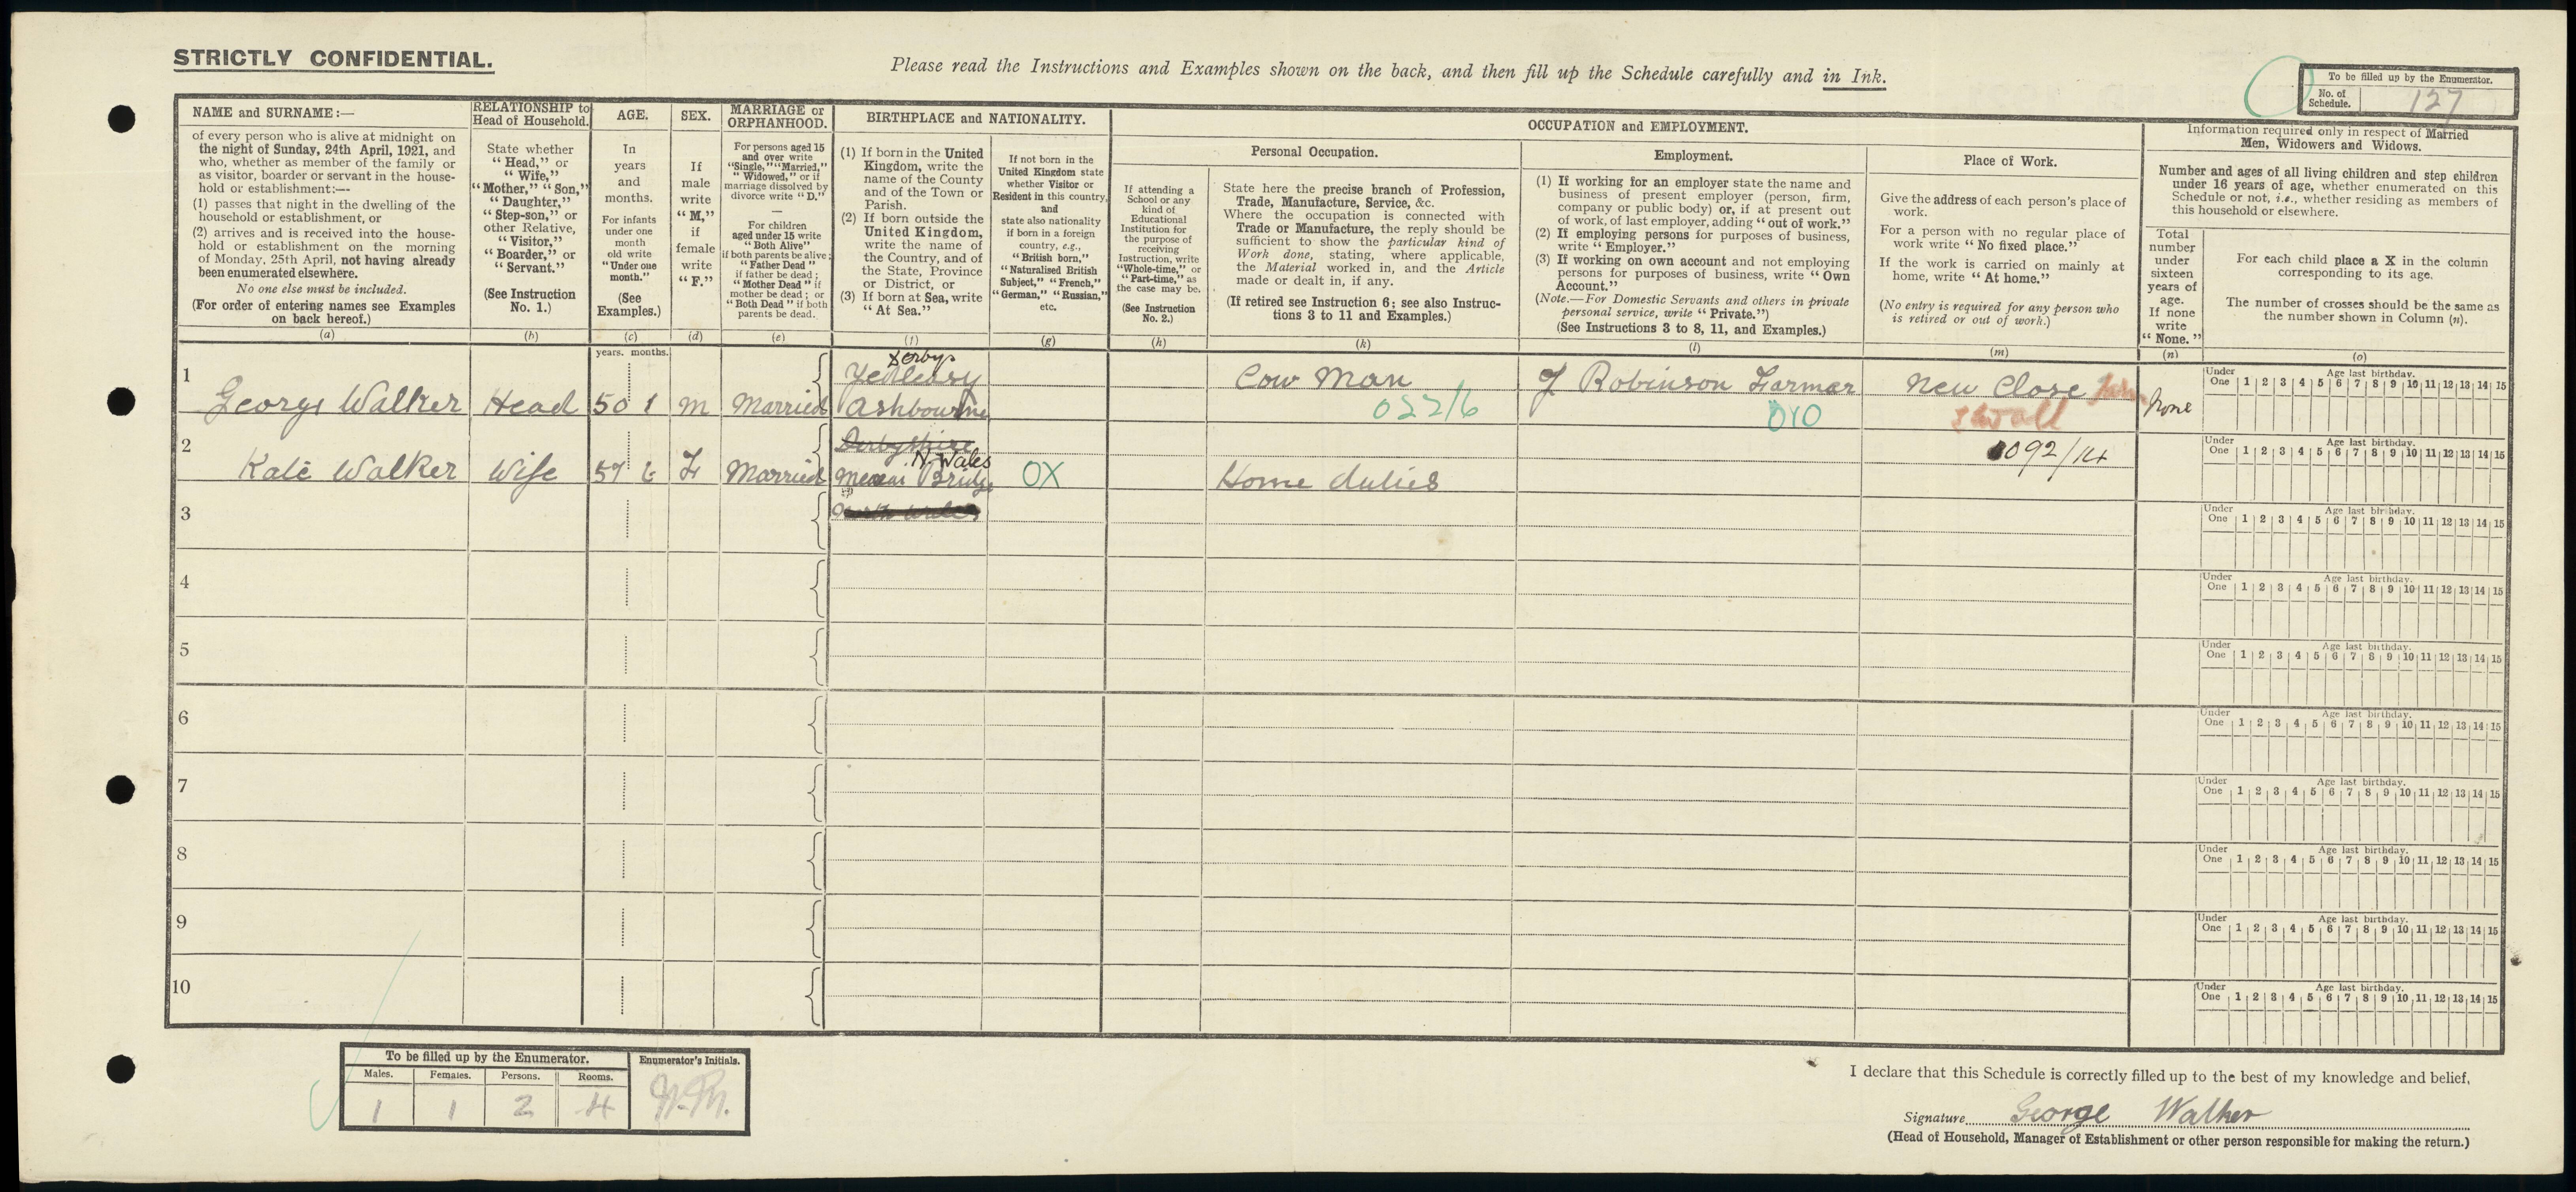 STRICTLY CONFIDENTIAL.
Please read the Instructions and Examples shown on the back, and then fill up the Schedule carefully and in Ink.
To be filled up by the Enumerator.
No. of Schedule. 127
NAME and SURNAME:—
of every person who is alive at midnight on
the night of Sunday, 24th April, 1921, and
who, whether as member of the family or
as visitor, boarder or servant in the house-
hold or establishment:—
(1) passes that night in the dwelling of the
household or establishment, or
(2) arrives and is received into the house-
hold or establishment on the morning
of Monday, 25th April, not having already
been enumerated elsewhere.
No one else must be included.
(For order of entering names see Examples
on back hereof.)
(a)
RELATIONSHIP to
Head of Household.
State whether
"Head," or
"Wife,"
"Mother," "Son,"
"Daughter,"
"Step-son," or
other Relative,
"Visitor,"
"Boarder," or
"Servant."
(See Instruction
No. 1.)
(b)
AGE.
In
years
and
months.
For infants
under one
month
old write
"Under one
month."
(See
Examples.)
(c)
SEX.
If
male
write
"M,"
if
female
write
"F."
(d)
MARRIAGE or
ORPHANHOOD.
For persons aged 15
and over write
"Single," "Married,"
"Widowed," or if
marriage dissolved by
divorce write "D."
—
For children
aged under 15 write
"Both Alive"
if both parents be alive;
"Father Dead"
if father be dead;
"Mother Dead" if
mother be dead; or
"Both Dead" if both
parents be dead.
(e)
BIRTHPLACE and NATIONALITY.
(1) If born in the United
Kingdom, write the
name of the County
and of the Town or
Parish.
(2) If born outside the
United Kingdom,
write the name of
the Country, and of
the State, Province
or District, or
(3) If born at Sea, write
"At Sea."
(f)
If not born in the
United Kingdom state
whether Visitor or
Resident in this country,
and
state also nationality
if born in a foreign
country, e.g.,
"British born,"
"Naturalised British
Subject," "French,"
"German," "Russian,"
etc.
(g)
OCCUPATION and EMPLOYMENT.
If attending a
School or any
kind of
Educational
Institution for
the purpose of
receiving
Instruction, write
"Whole-time," or
"Part-time," as
the case may be.
(See Instruction
No. 2.)
(h)
Personal Occupation.
State here the precise branch of Profession,
Trade, Manufacture, Service, &c.
Where the occupation is connected with
Trade or Manufacture, the reply should be
sufficient to show the particular kind of
Work done, stating, where applicable,
the Material worked in, and the Article
made or dealt in, if any.
(If retired see Instruction 6; see also Instruc-
tions 3 to 11 and Examples.)
(k)
Employment.
(1) If working for an employer state the name and
business of present employer (person, firm,
company or public body) or, if at present out
of work, of last employer, adding "out of work."
(2) If employing persons for purposes of business,
write "Employer."
(3) If working on own account and not employing
persons for purposes of business, write "Own
Account."
(Note.—For Domestic Servants and others in private
personal service, write "Private.")
(See Instructions 3 to 8, 11, and Examples.)
(l)
Place of Work.
Give the address of each person's place of
work.
For a person with no regular place of
work write "No fixed place."
If the work is carried on mainly at
home, write "At home."
(No entry is required for any person who
is retired or out of work.)
(m)
Information required only in respect of Married
Men, Widowers and Widows.
Number and ages of all living children and step children
under 16 years of age, whether enumerated on this
Schedule or not, i.e., whether residing as members of
this household or elsewhere.
Total
number
under
sixteen
years of
age.
If none
write
"None."
(n)
For each child place a X in the column
corresponding to its age.
The number of crosses should be the same as
the number shown in Column (n).
(o)
years. months.
1
Derbys
Ashbourne
George Walker Head 50 1 M Married
Cow Man
022/6
J Robinson Farmer
010
New Close Farm
None
Under One Age last birthday.
1 2 3 4 5 6 7 8 9 10 11 12 13 14 15
2
Derbyshire
N. Wales
Kate Walker Wife 57 F Married Menai Bridge OX Home duties
1092/14
Under One Age last birthday.
1 2 3 4 5 6 7 8 9 10 11 12 13 14 15
3
North Wales
Under One Age last birthday.
1 2 3 4 5 6 7 8 9 10 11 12 13 14 15
4
Under One Age last birthday.
1 2 3 4 5 6 7 8 9 10 11 12 13 14 15
5
Under One Age last birthday.
1 2 3 4 5 6 7 8 9 10 11 12 13 14 15
6
Under One Age last birthday.
1 2 3 4 5 6 7 8 9 10 11 12 13 14 15
7
Under One Age last birthday.
1 2 3 4 5 6 7 8 9 10 11 12 13 14 15
8
Under One Age last birthday.
1 2 3 4 5 6 7 8 9 10 11 12 13 14 15
9
Under One Age last birthday.
1 2 3 4 5 6 7 8 9 10 11 12 13 14 15
10
Under One Age last birthday.
1 2 3 4 5 6 7 8 9 10 11 12 13 14 15
To be filled up by the Enumerator.
Enumerator's Initials.
Males. Females. Persons. Rooms.
1 1 2 4
I declare that this Schedule is correctly filled up to the best of my knowledge and belief,
Signature George Walker
(Head of Household, Manager of Establishment or other person responsible for making the return.)